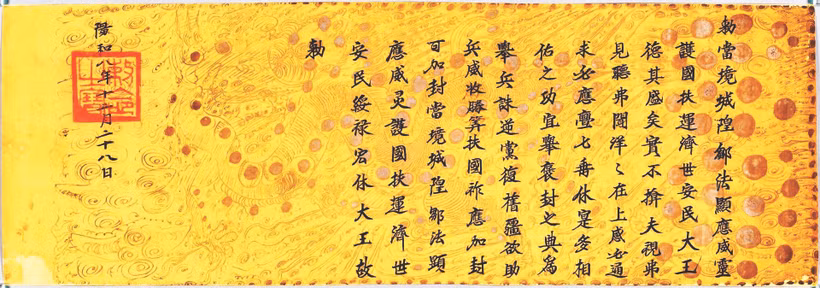 勅當境城隍鄒法顯應威靈
護國扶運濟世安民大王
德其盛矣實不揜夫視弗
見聽弗聞洋〻在上感必通
求必應亹亹毋休寔多相
佑之功宜舉褒封之典爲
舉兵誅逆黨復舊疆欲助
兵威收勝筭扶國祚應加封
可加封當境城隍鄒法顯
應威灵護國扶運濟世
安民綏禄宏休大王故
勅
陽和八年十一月二十八日
敕命之寶